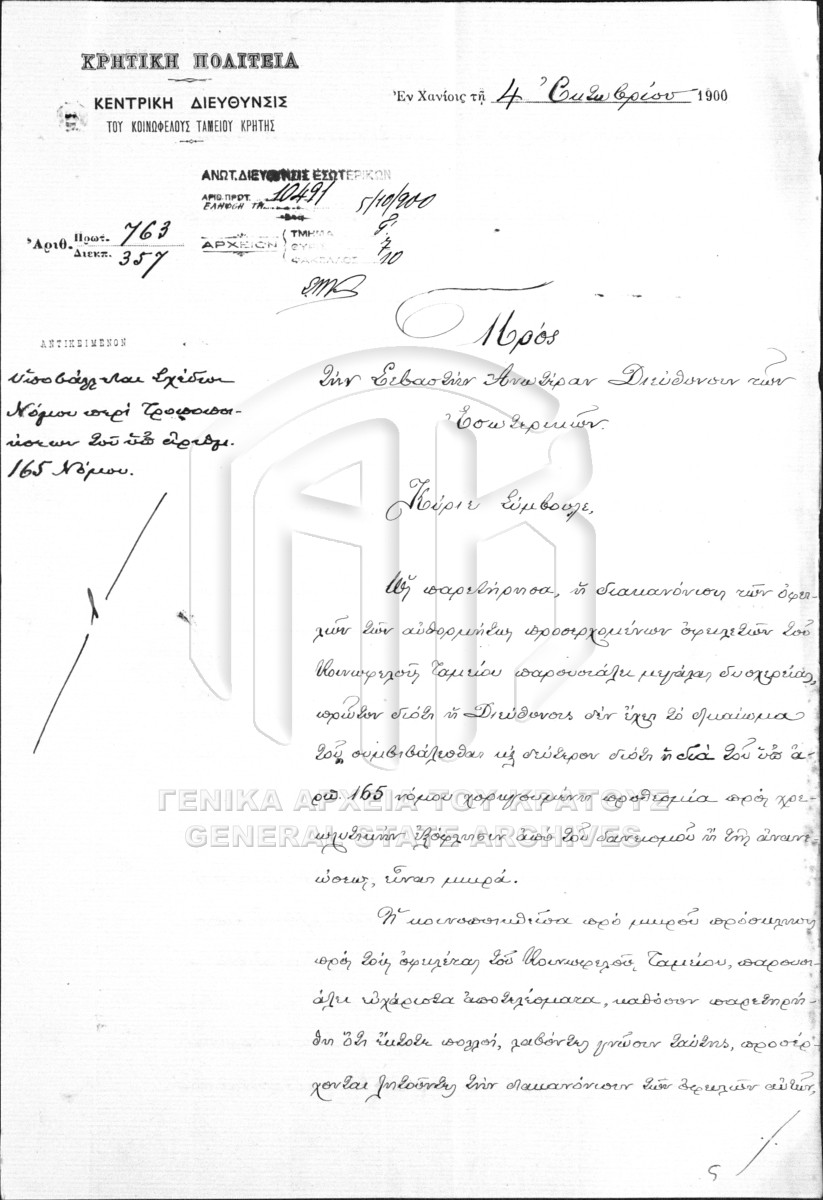 ΚΡΗΤΙΚΗ ΠΟΛΙΤΕΙΑ
ΚΕΝΤΡΙΚΗ ΔΙΕΥΘΥΝΣΙΣ
ΤΟΥ ΚΟΙΝΩΦΕΛΟΥΣ ΤΑΜΕΙΟΥ ΚΡΗΤΗΣ
Ἐν Χανίοις τῇ 4 Ὀκτωβρίου 1900
ΑΝΩΤ. ΔΙΕΥΘΥΝΣΙΣ ΕΣΩΤΕΡΙΚΩΝ
ΑΡΙΘ. ΠΡΩΤ. 10491
ΕΛΗΦΘΗ ΤΗ 5/10/900
ΑΡΧΕΙΟΝ
ΤΜΗΜΑ
ΦΑΚΕΛΛΟΣ 10
Ἀριθ. Πρωτ. 763
Διεκπ. 357
ΑΝΤΙΚΕΙΜΕΝΟΝ
Ὑποβάλλεται Σχέδιον
Νόμου περὶ τροποποι-
ήσεων τοῦ ὑπ' ἀριθμ.
165 Νόμου.
Πρός
τὴν Σεβαστὴν Ἀνωτέραν Διεύθυνσιν τῶν
Ἐσωτερικῶν.
Κύριε Σύμβουλε,
Ὡς παρετήρησα, ἡ διακανόνισις τῶν ὀφει-
λῶν τῶν αὐθορμήτως προσερχομένων ὀφειλετῶν τοῦ
Κοινωφελοῦς Ταμείου παρουσιάζει μεγάλας δυσχερείας,
πρῶτον διότι ἡ Διεύθυνσις δὲν ἔχει τὸ δικαίωμα
τοῦ συμβιβάζεσθαι κ̀ δεύτερον διότι ἡ διὰ τοῦ ὑπ' ἀ-
ριθ. 165 νόμου χορηγουμένη προθεσμία πρὸς χρε-
ωλυτικὴν ἐξόφλησιν ἀπὸ τοῦ δανεισμοῦ ἢ τῆς ἀνανε-
ώσεως, εἶναι μικρά.
Ἡ κοινοποιηθεῖσα πρὸ μικροῦ πρόσκλησις
πρὸς τοὺς ὀφειλέτας τοῦ Κοινωφελοῦς Ταμείου, παρουσι-
άζει εὐχάριστα ἀποτελέσματα, καθόσον παρετηρή-
θη ὅτι ἔκτοτε πολλοί, λαβόντες γνῶσιν ταύτης, προσέρ-
χονται ζητοῦντες τὴν διακανόνισιν τῶν ὀφειλῶν αὐτῶν,
./.
ΓΕΝΙΚΑ ΑΡΧΕΙΑ ΤΟΥ ΚΡΑΤΟΥΣ
GENERAL STATE ARCHIVES